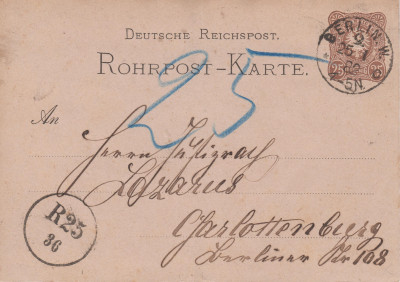 DEUTSCHE REICHSPOST.
ROHRPOST-KARTE.
BERLIN W.
9
5N.
25
An
Herrn Justizrath
Lazarus
Charlottenburg
Berliner Str 108
R25
86